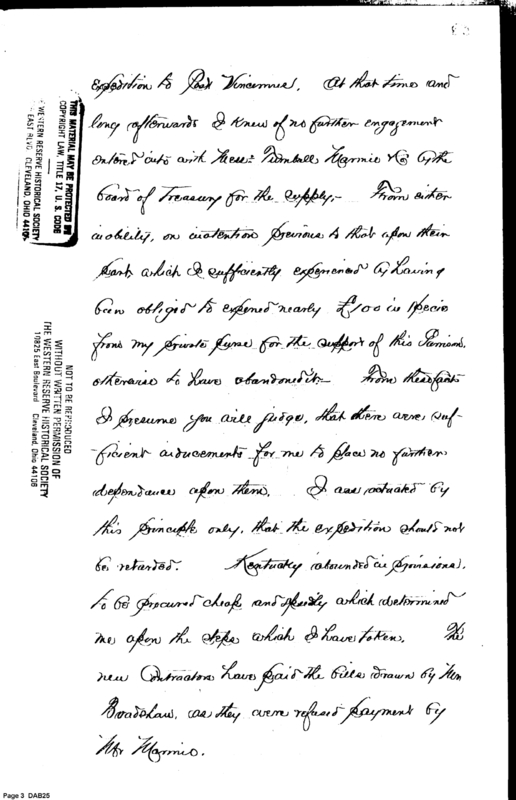 expedition to Post Vincennes. At that time and
long afterwards I knew of no further engagement
entered into with these Turnbull Marmie & Co by the
board of Treasury for the supply;- From either
inability, or inattention previous to that upon their
part which I sufficiently experienced by having
been obliged to expend nearly £100 in specie
from my private purse for the support of this Garrison,
otherwise to have abandoned it:- From these facts
I presume you will judge, that there were suf-
ficient inducements for me to place no further
dependance upon them. I was actuated by
this principle only, that the expedition should not
be retarded. Kentucky abounded in provisions,
to be procured cheap and speedily which determined
me upon the steps which I have taken. The
new Contractors have paid the bills drawn by Mr
Bradshaw, as they were refused payment by
Mr Marmie.
THIS MATERIAL MAY BE PROTECTED BY
COPYRIGHT LAW, TITLE 17, U. S. CODE
WESTERN RESERVE HISTORICAL SOCIETY
EAST BLVD. CLEVELAND, OHIO 44106
NOT TO BE REPRODUCED
WITHOUT WRITTEN PERMISSION OF
THE WESTERN RESERVE HISTORICAL SOCIETY
10825 East Boulevard Cleveland, Ohio 44106
Page 3 DAB25